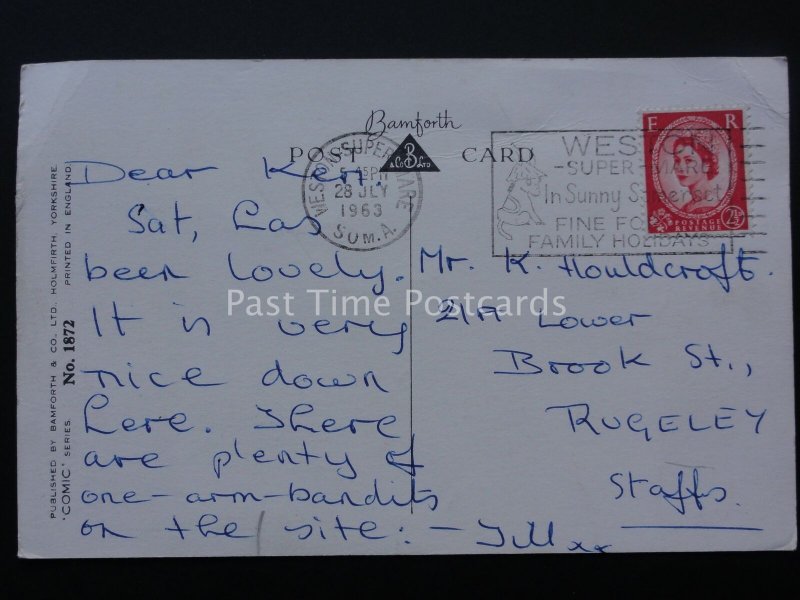 Bamforth
POST CARD
B
& Co LTD
WESTON-SUPER-MARE
5 45PM
28 JLY
1963
SOM. A.
WESTON
-SUPER-MARE
In Sunny Somerset
FINE FOR
FAMILY HOLIDAYS
E R
2½
POSTAGE
REVENUE
Dear Ken,
Sat, has
been lovely.
It is very
nice down
here. There
are plenty of
one-arm-bandits
on the site. - Jill xx
Mr. K. Houldcroft.
21A Lower
Brook St.,
RUGELEY
Staffs.
PUBLISHED BY BAMFORTH & CO. LTD., HOLMFIRTH, YORKSHIRE.
PRINTED IN ENGLAND.
"COMIC" SERIES. No. 1872
Past Time Postcards